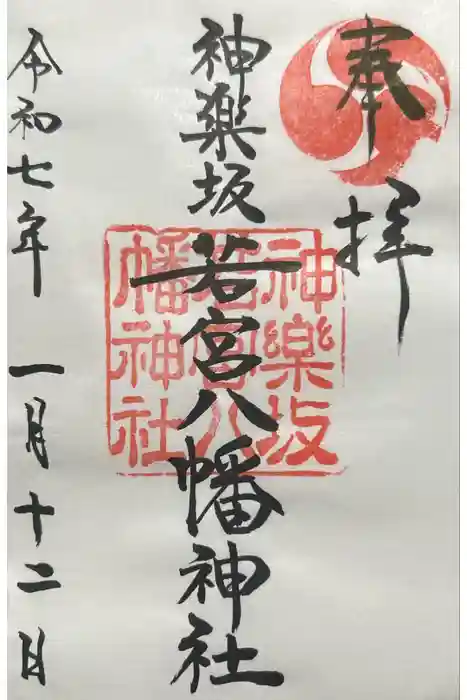 奉拝
神楽坂 若宮八幡神社
神樂坂
若宮八
幡神社
令和七年 一月十二日